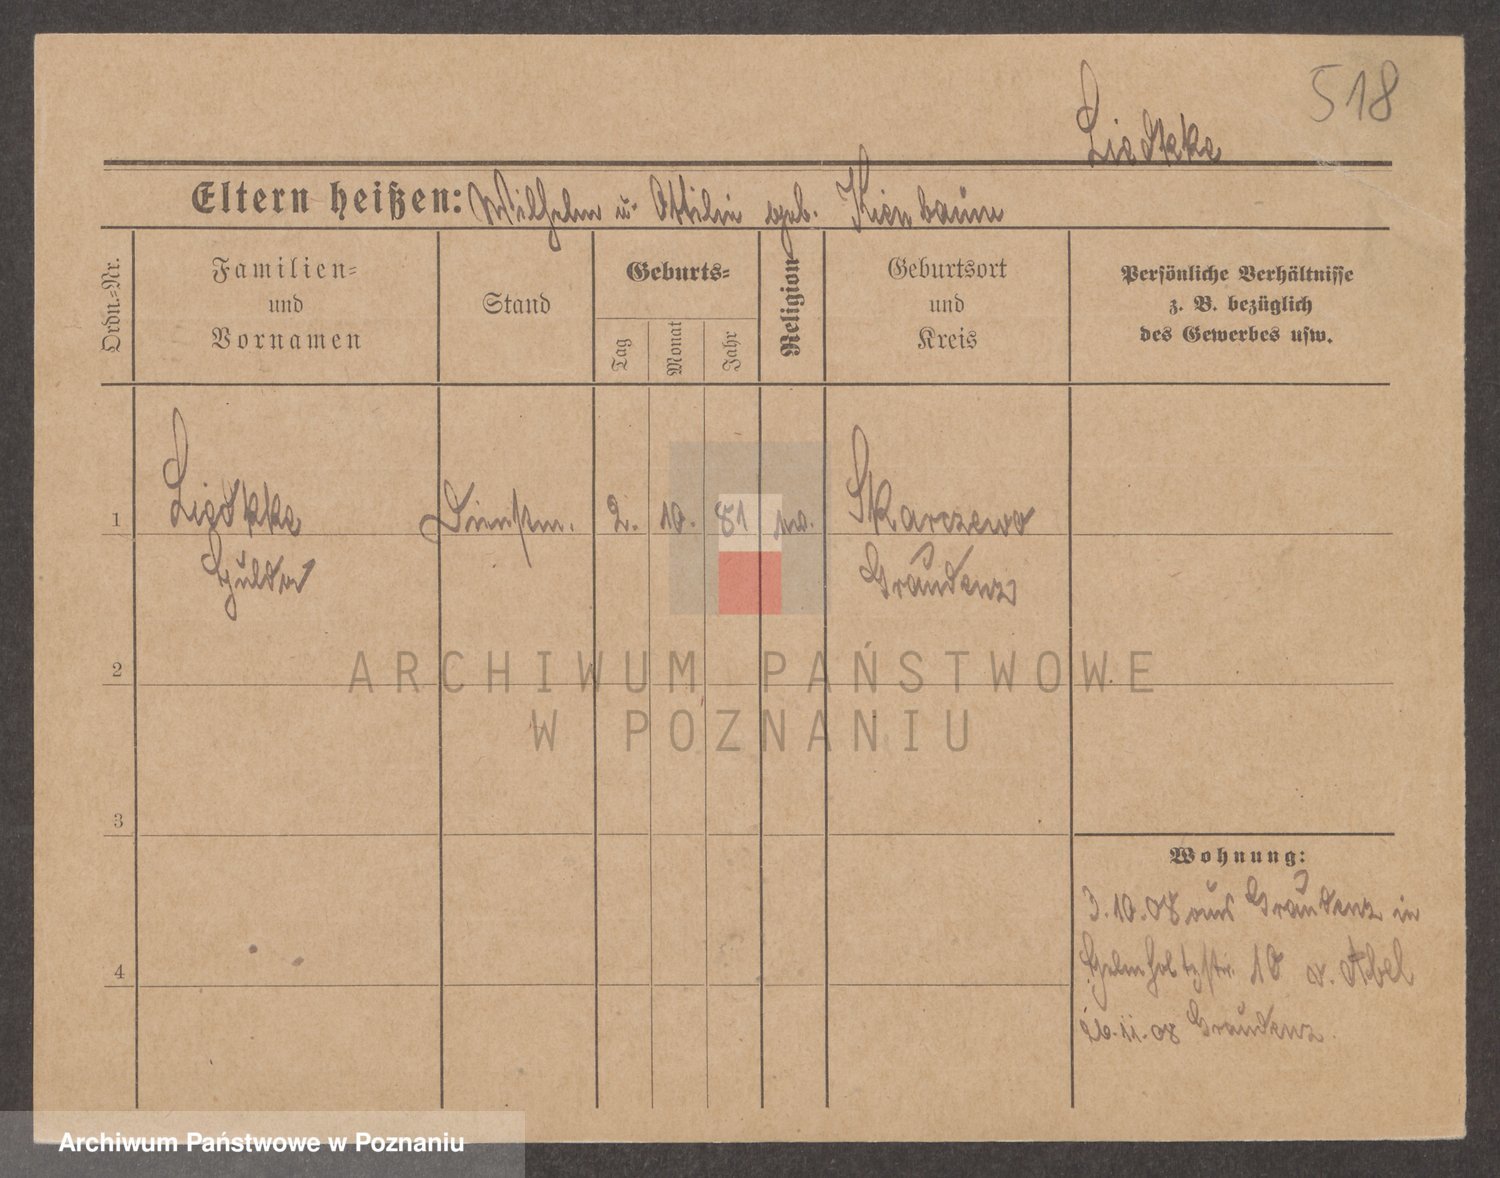 518
Liedtke
Eltern heißen: Wilhelm u. Ottilie geb. Kienbaum
Ordn.=Nr.
Familien=
und
Vornamen
Stand
Geburts=
Tag
Monat
Jahr
Religion
Geburtsort
und
Kreis
Persönliche Verhältnisse
z. B. bezüglich
des Gewerbes usw.
1 Liedtke Dienstm. 2. 10. 81 Skarczewo
Hulda Graudenz
2
ARCHIWUM PAŃSTWOWE
W POZNANIU
3
Wohnung:
3.10.08 aus Graudenz in
4 Helmholtzstr. 10 b. Abel
26.11.08 Graudenz.
Archiwum Państwowe w Poznaniu